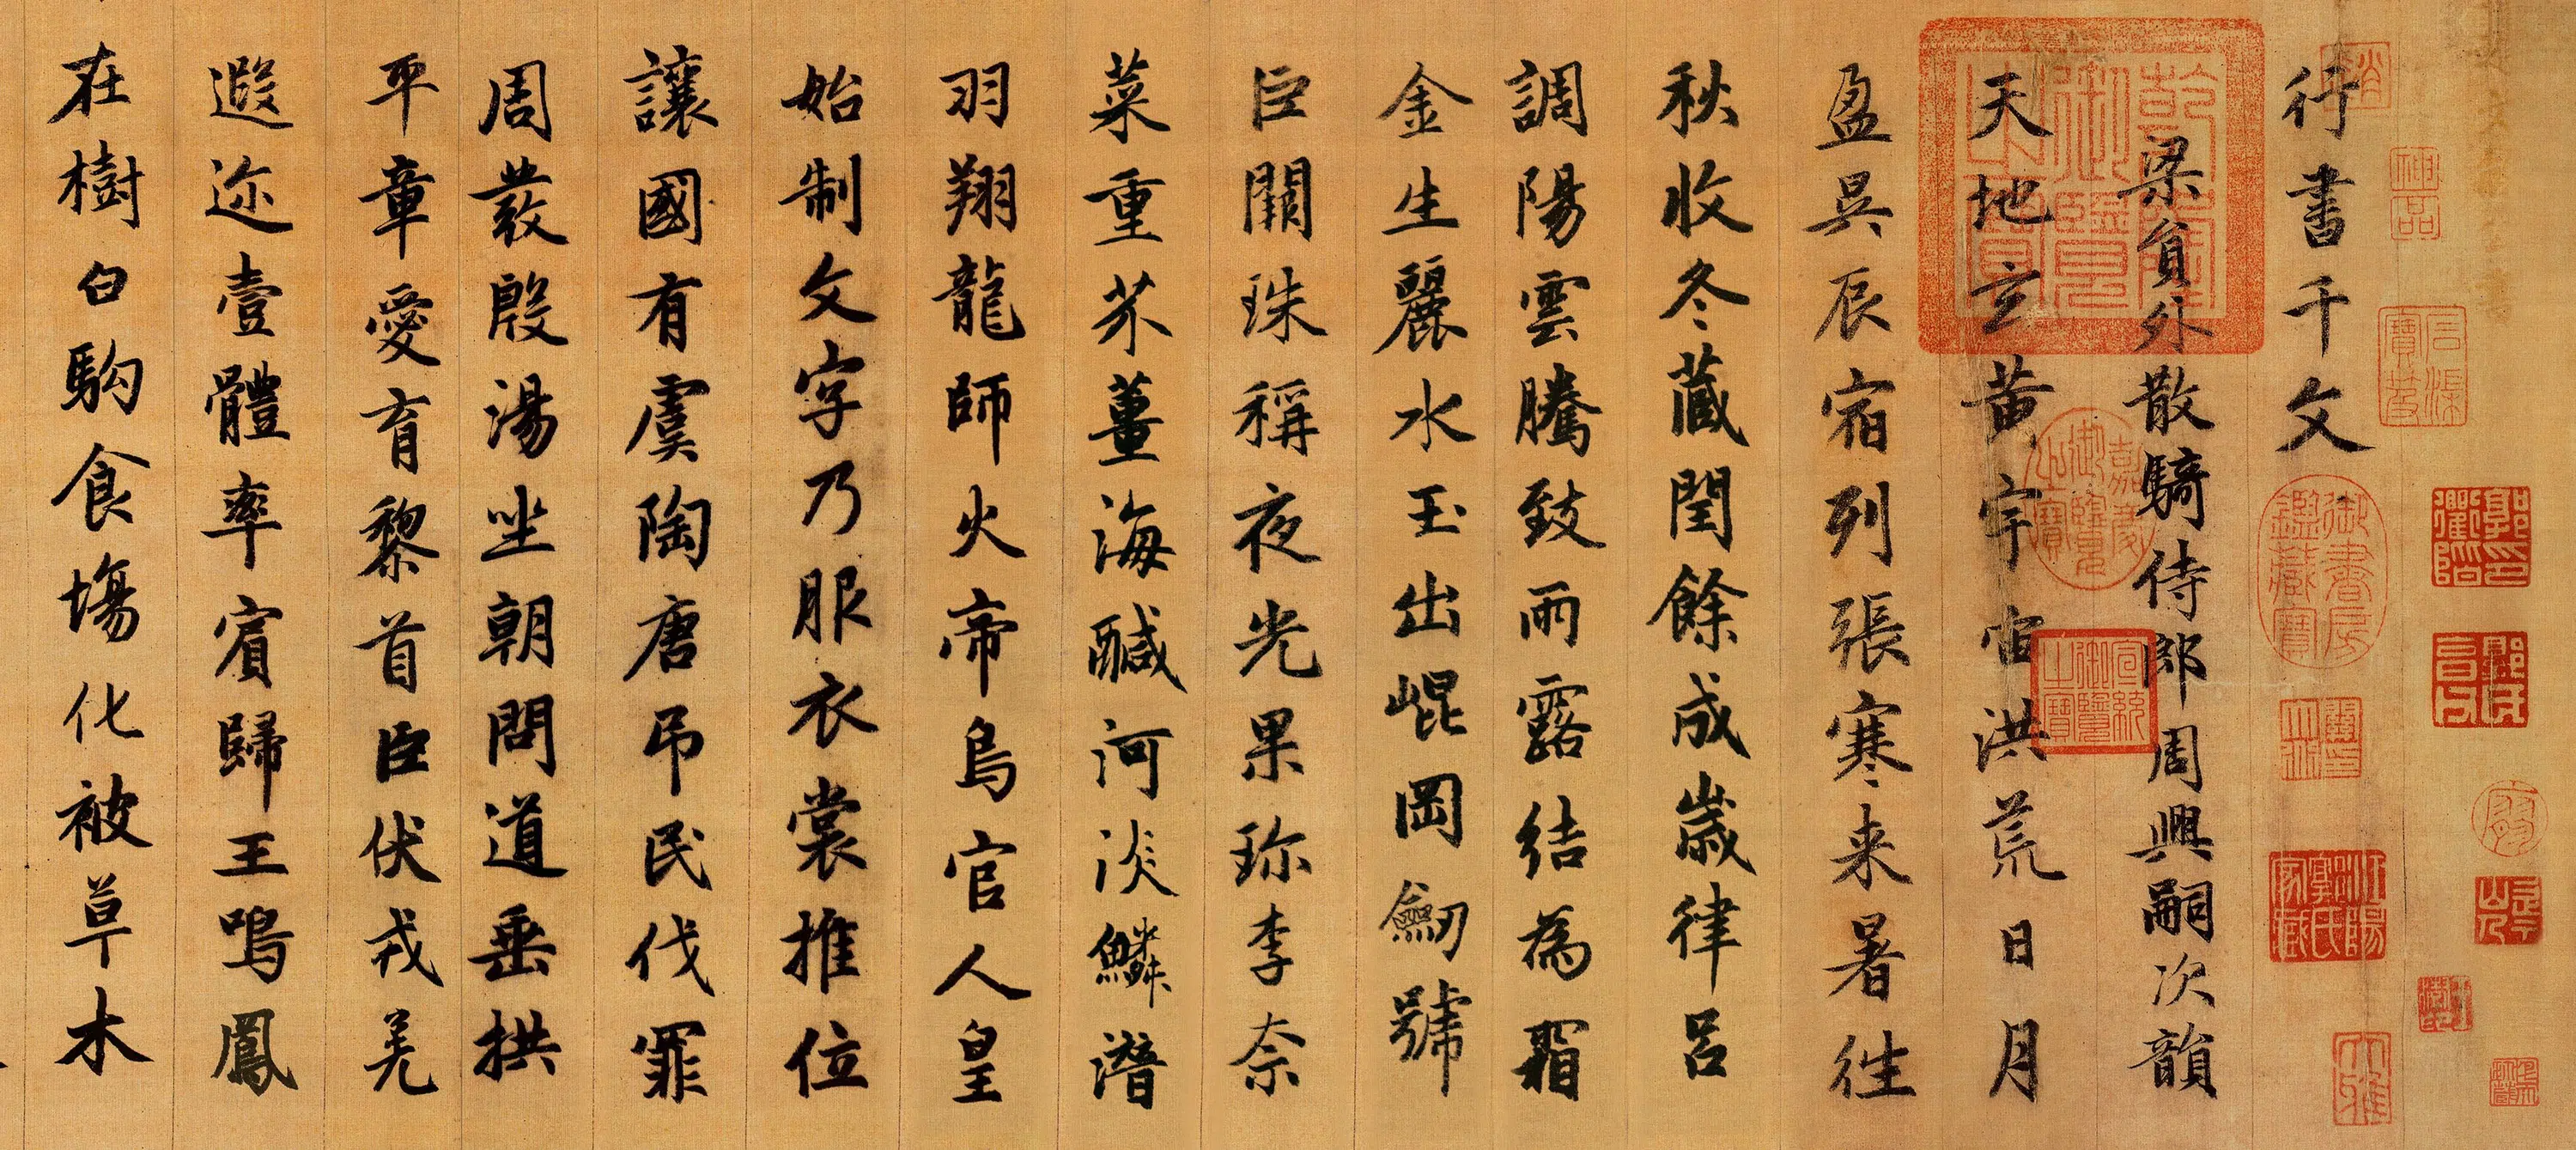 行書千文
梁負外散騎侍郎周興嗣次韻
天地玄黃宇宙洪荒日月
盈昃辰宿列張寒来暑往
秋收冬蔵閏餘成歲律呂
調陽雲騰致雨露結為霜
金生麗水玉出崐岡劒號
巨闕珠稱夜光果珎李柰
菜重芥薑海醎河淡鱗潛
羽翔龍師火帝鳥官人皇
始制文字乃服衣裳推位
讓國有虞陶唐吊民伐罪
周發殷湯坐朝問道垂拱
平章愛育黎首臣伏戎羌
遐迩壹體率賓歸王鳴鳳
在樹白駒食場化被草木
乾隆御覽之寶
嘉慶御覽之寶
宣統御覽之寶
御書房鑑藏寶
神品